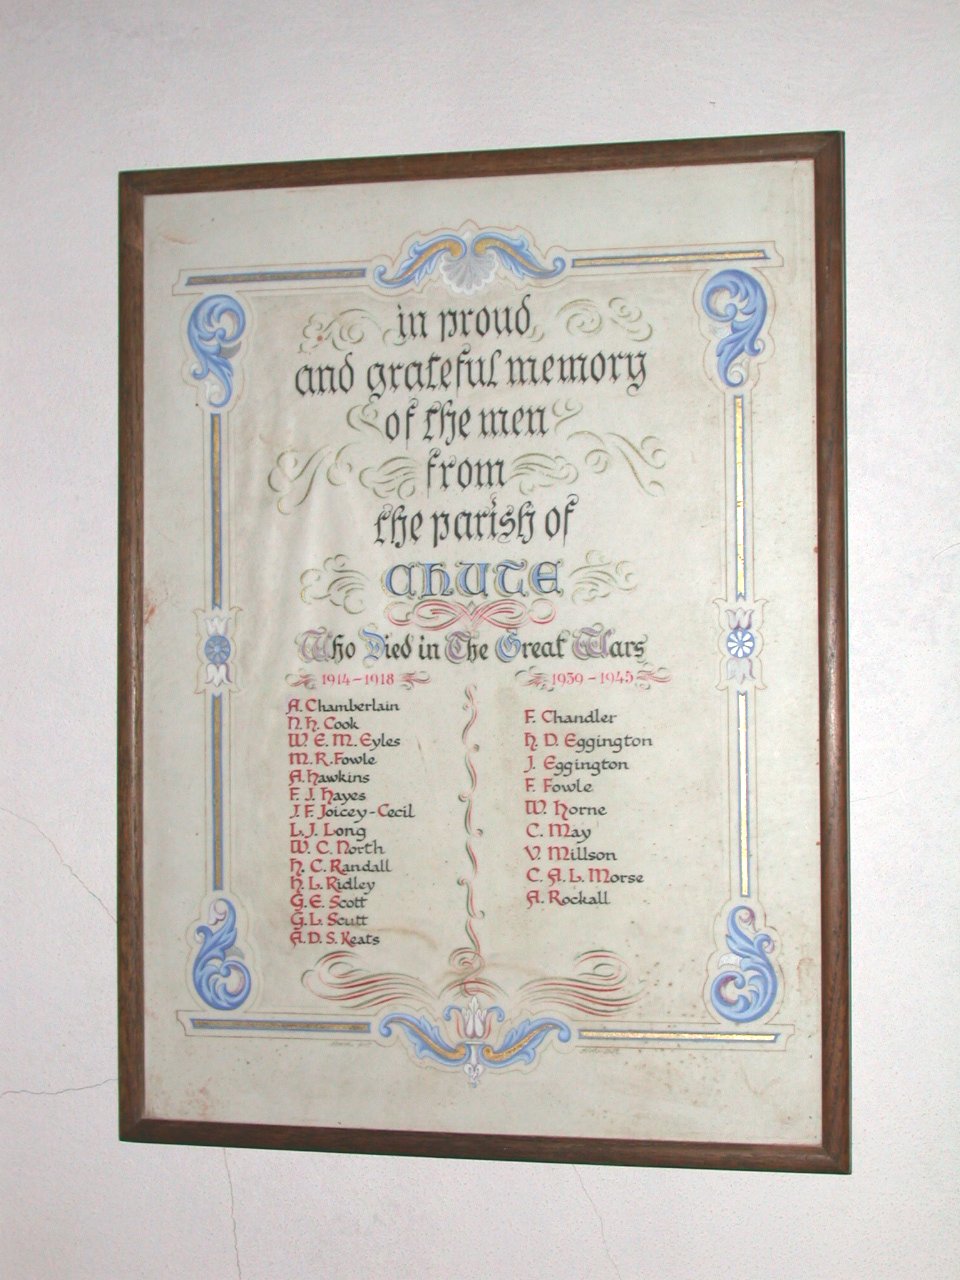 in proud
and grateful memory
of the men
from
the parish of
CHUTE
Who Died in The Great Wars
1914-1918
A. Chamberlain
N. H. Cook
W. E. M. Eyles
M. R. Fowle
A. Hawkins
F. J. Hayes
J. F. Joicey-Cecil
L. J. Long
W. C. North
H. C. Randall
H. L. Ridley
G. E. Scott
G. L. Scutt
A. D. S. Keats
1939-1945
F. Chandler
H. D. Eggington
J. Eggington
F. Fowle
W. Horne
C. May
V. Millson
C. A. L. Morse
A. Rockall